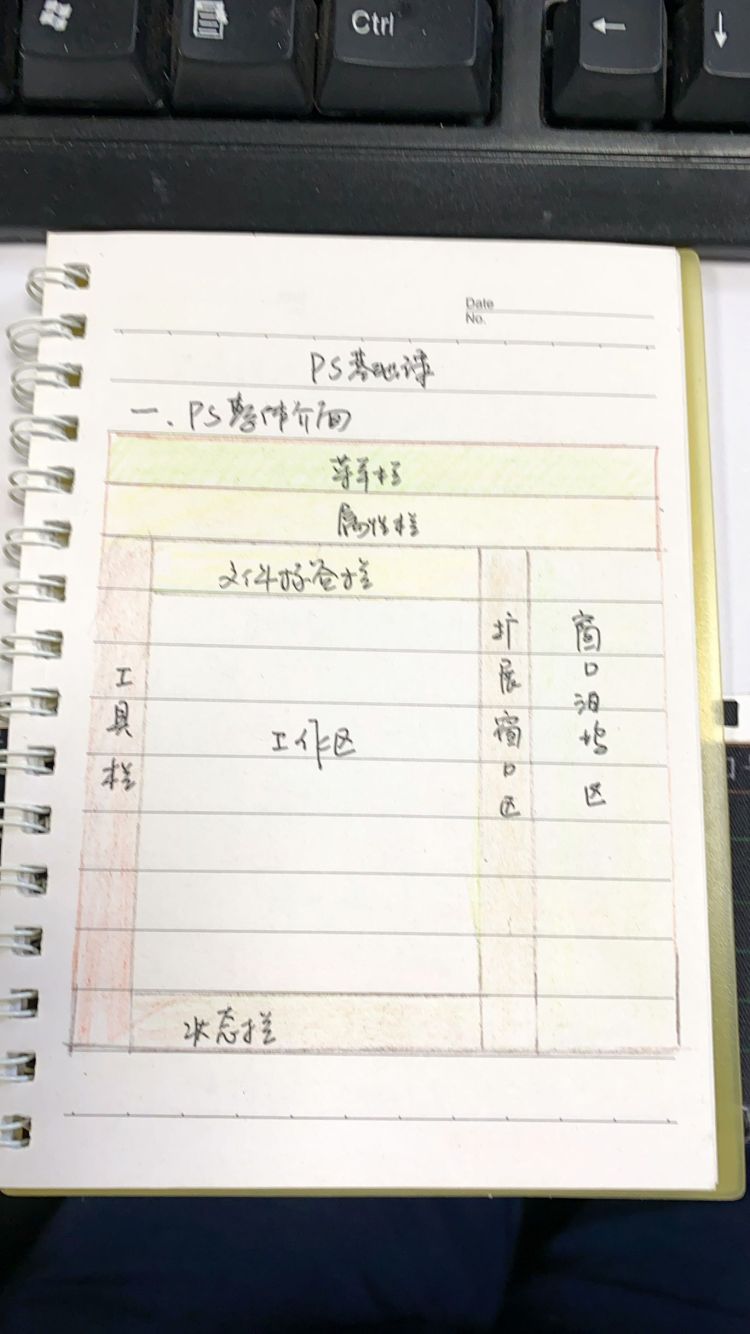 Ctrl
←
↓
Date
No.
PS基础课
一、PS整体介面
菜单栏
属性栏
文件标签栏
工具栏
工作区
扩展窗口区
窗口泊坞区
状态栏